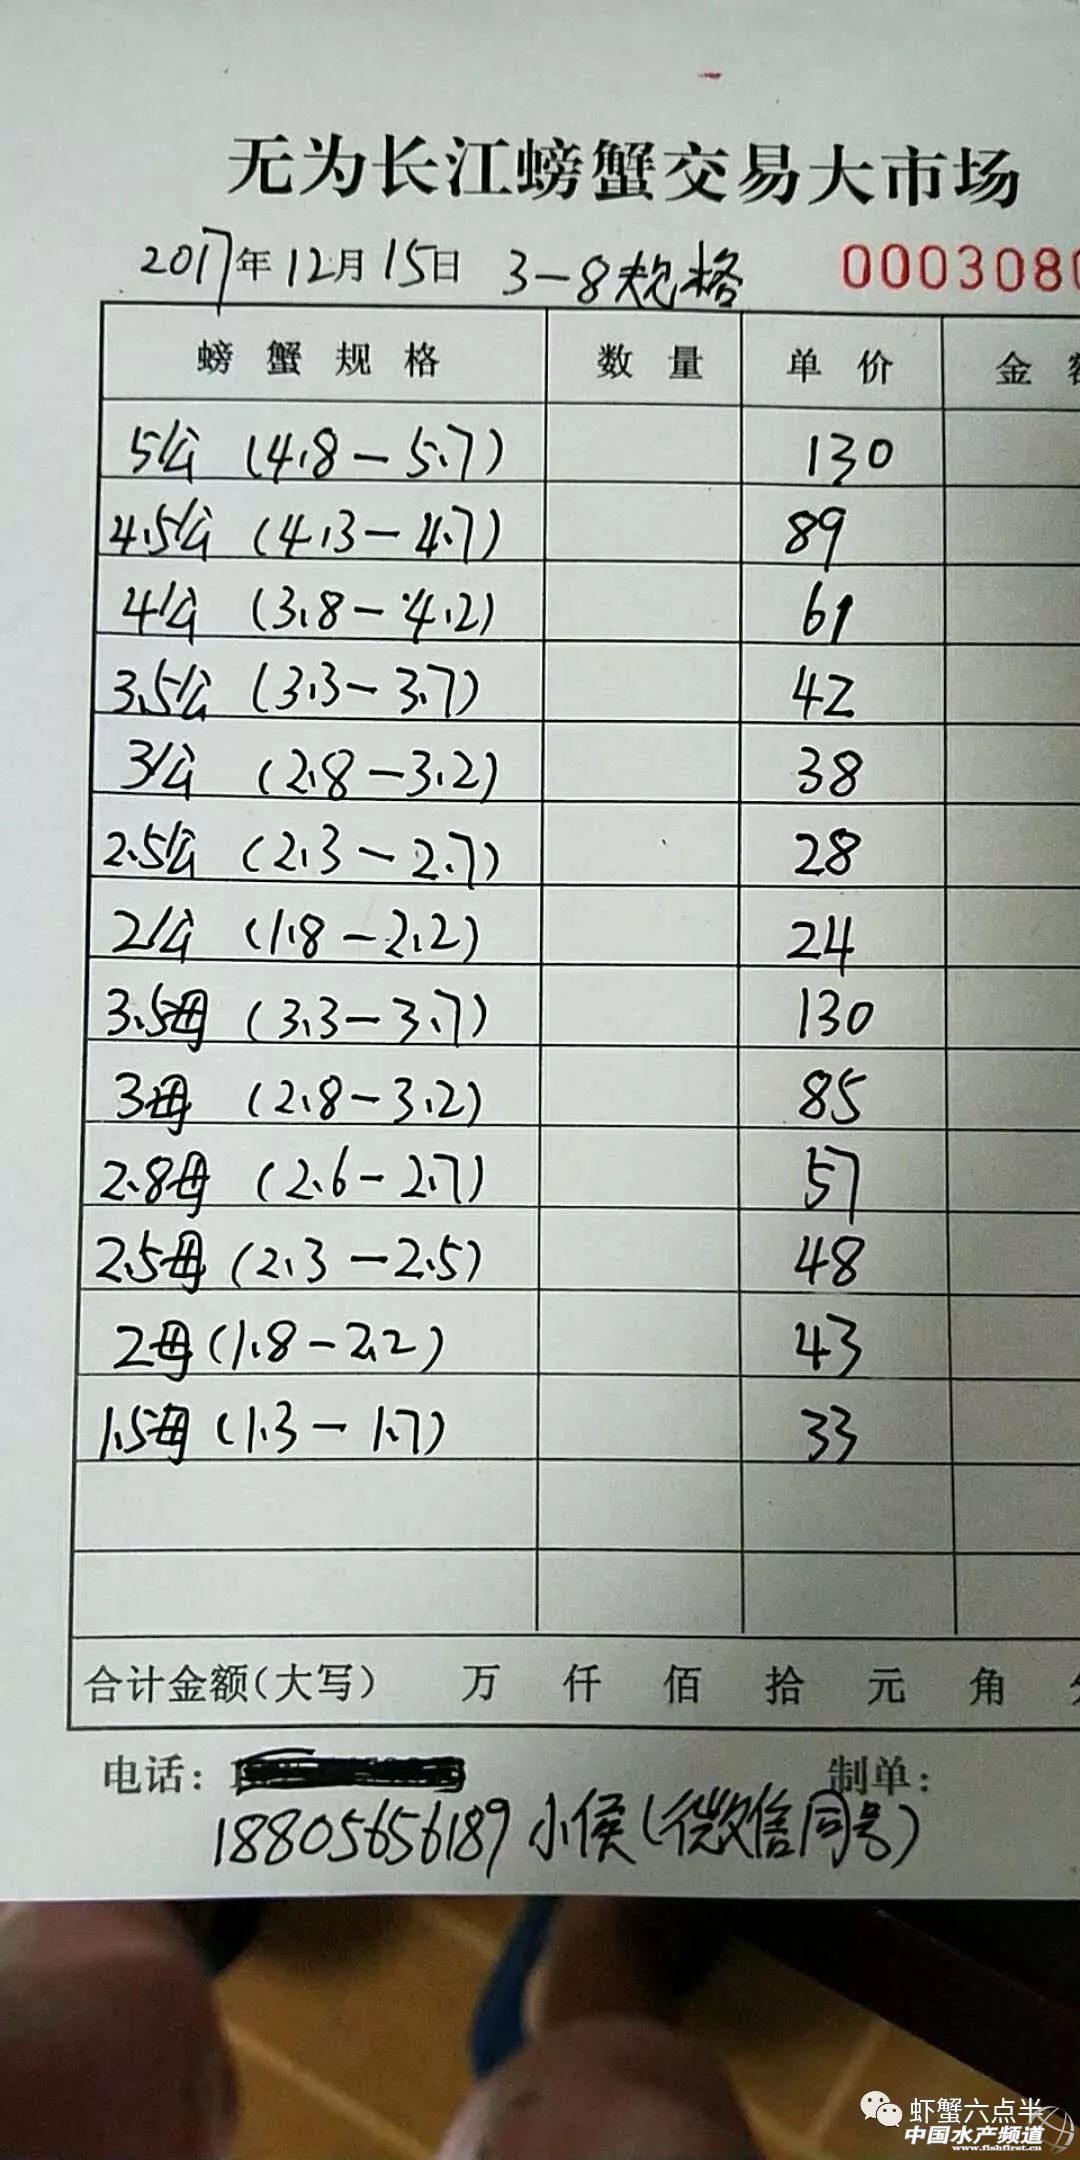 无为长江螃蟹交易大市场
2017年12月15日 3-8规格 000308
螃蟹规格 数量 单价 金
5公 (4.8-5.7) 130
4.5公 (4.3-4.7) 89
4公 (3.8-4.2) 61
3.5公 (3.3-3.7) 42
3公 (2.8-3.2) 38
2.5公 (2.3-2.7) 28
2公 (1.8-2.2) 24
3.5母 (3.3-3.7) 130
3母 (2.8-3.2) 85
2.8母 (2.6-2.7) 57
2.5母 (2.3-2.5) 48
2母 (1.8-2.2) 43
1.5母 (1.3-1.7) 33
合计金额(大写) 万 仟 佰 拾 元 角
电话: 制单:
18805656189 小侯(微信同号)
虾蟹六点半
中国水产频道
www.fishfirst.cn